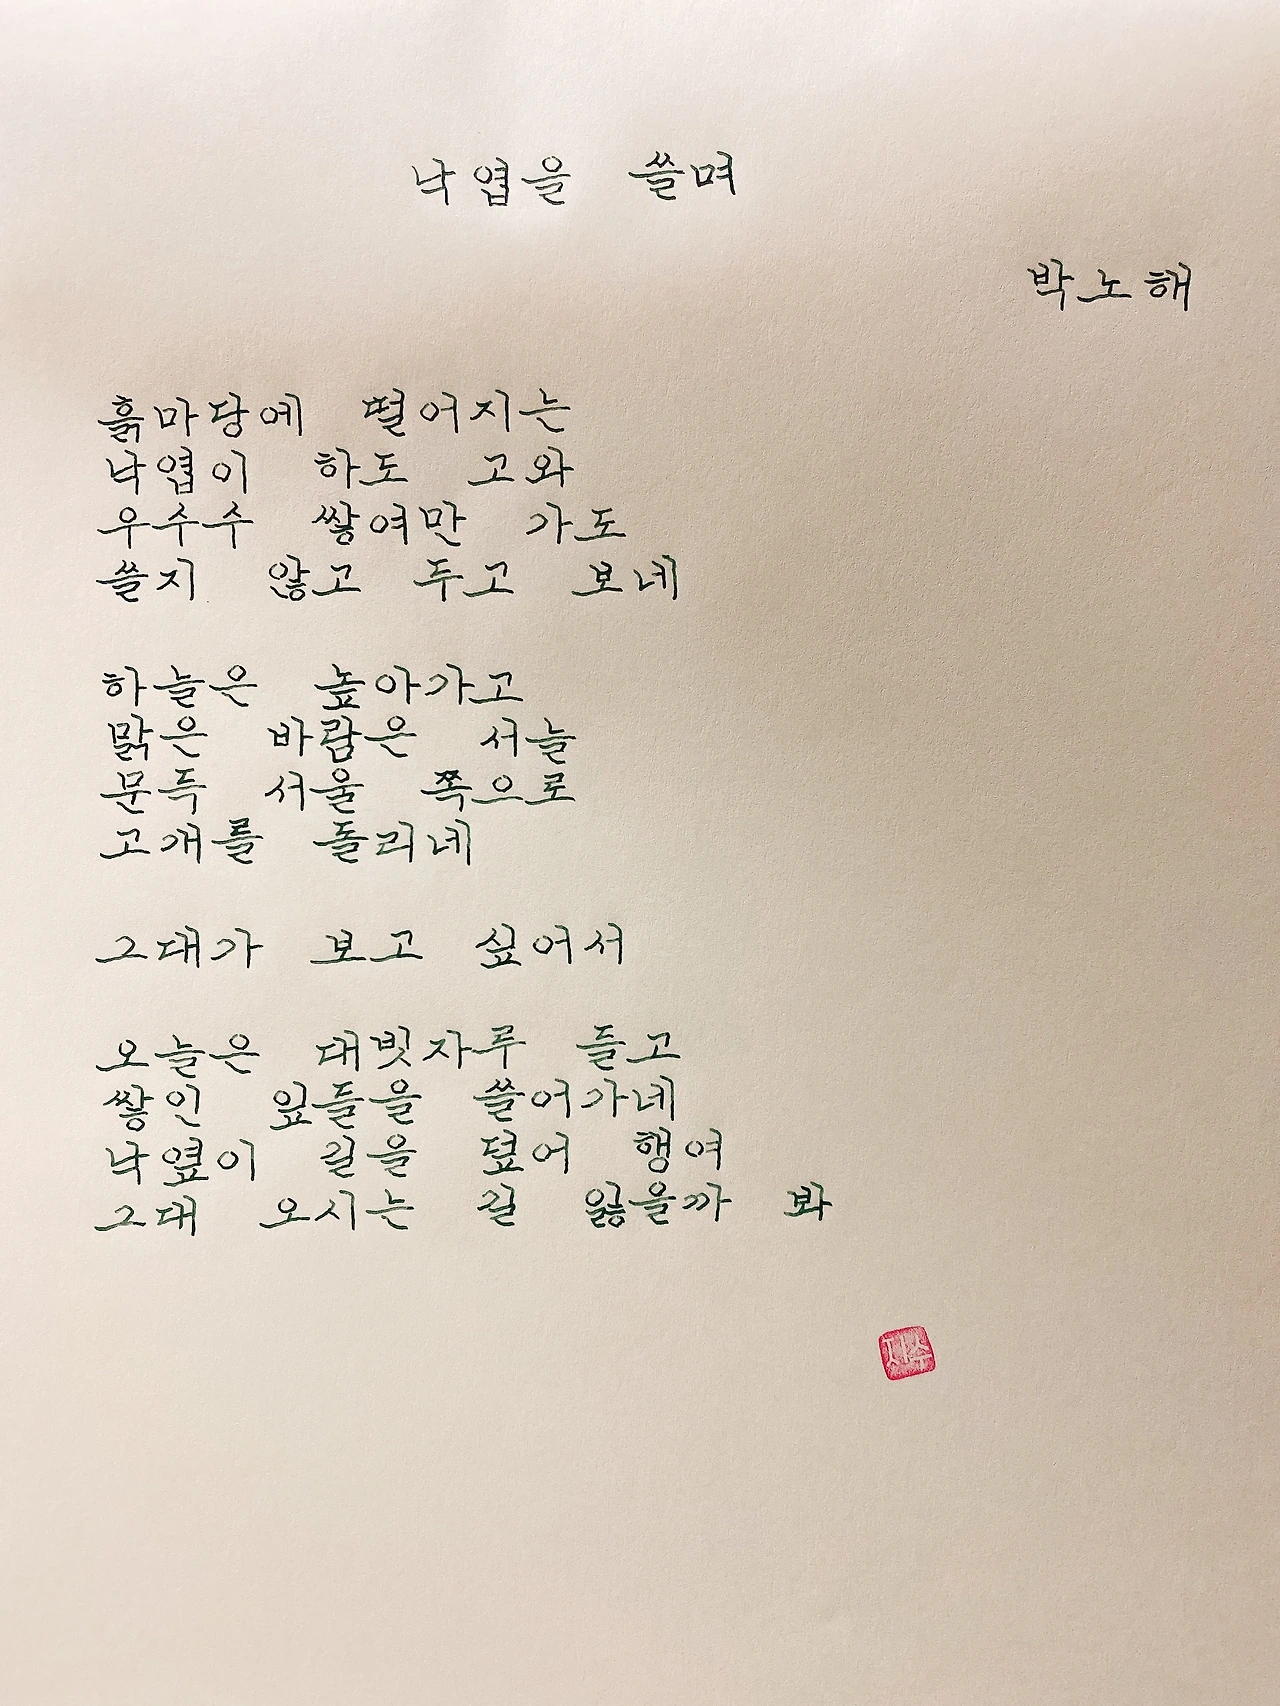 낙엽을 쓸며
박노해
흙마당에 떨어지는
낙엽이 하도 고와
우수수 쌓여만 가도
쓸지 않고 두고 보네
하늘은 높아가고
맑은 바람은 서늘
문득 서울 쪽으로
고개를 돌리네
그대가 보고 싶어서
오늘은 대빗자루 들고
쌓인 잎들을 쓸어가네
낙옆이 길을 덮어 행여
그대 오시는 길 잃을까 봐
자수